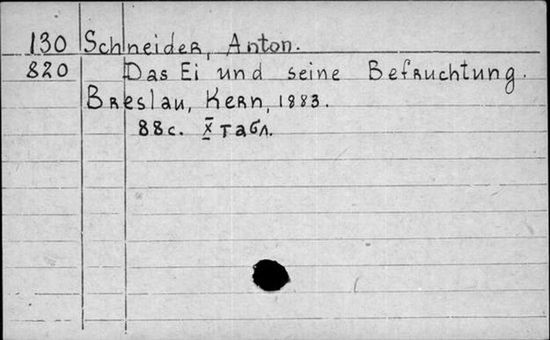 130 Schneider, Anton.
820 Das Ei und seine Befruchtung.
Breslau, Kern, 1883.
88c. X табл.